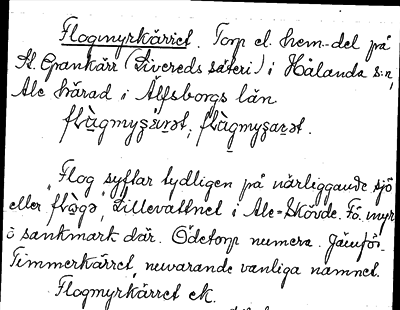 Flogmyrkärret. Torp el. hem.-del på
St. Grankärr (Livereds säteri) i Hålanda s:n,
Ale härad i Älfsborgs län.
"Flog syftar tydligen på närliggande sjö
eller Lillevattnet i Ale-Skövde. Fö. myr
o sankmark där. Ödetorp numera. Jämför
Timmerkärret, nuvarande vanliga namnet.
Flogmyrkärret ek.